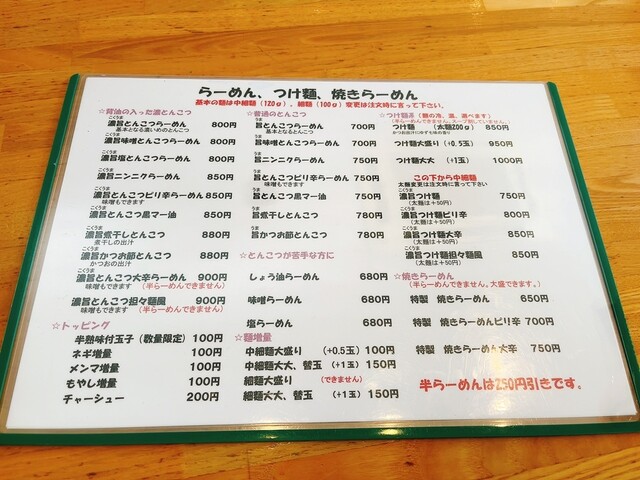 らーめん、つけ麺、焼きらーめん
基本の麺は中細麺(120g)。細麺(100g)変更は注文時に言って下さい。
☆背油の入った濃とんこつ
こくうま
濃旨とんこつらーめん 800円
基本となる濃いめのとんこつ
こくうま
濃旨味噌とんこつらーめん 800円
こくうま
濃旨塩とんこつらーめん 800円
こくうま
濃旨ニンニクらーめん 850円
こくうま
濃旨とんこつピリ辛らーめん 850円
味噌もできます
こくうま
濃旨とんこつ黒マー油 850円
こくうま
濃旨煮干しとんこつ 880円
煮干しの出汁
こくうま
濃旨かつお節とんこつ 880円
かつおの出汁
こくうま
濃旨とんこつ大辛らーめん 900円
味噌もできます (半らーめんできません)
こくうま
濃旨とんこつ担々麺風 900円
味噌もできます (半らーめんできません)
☆トッピング
半熟味付玉子(数量限定) 100円
ネギ増量 100円
メンマ増量 100円
もやし増量 100円
チャーシュー 200円
☆普通のとんこつ
うま
旨とんこつらーめん 700円
基本となるとんこつ
うま
旨味噌とんこつらーめん 700円
うま
旨ニンニクらーめん 750円
うま
旨とんこつピリ辛らーめん 750円
味噌もできます
うま
旨とんこつ黒マー油 750円
うま
旨煮干しとんこつ 780円
うま
旨かつお節とんこつ 780円
☆とんこつが苦手な方に
しょう油らーめん 680円
味噌らーめん 680円
塩らーめん 680円
☆麺増量
中細麺大盛り (+0.5玉) 100円
中細麺大大、替玉 (+1玉) 150円
細麺大盛り (できません)
細麺大大、替玉 (+1玉) 150円
☆つけ麺系(麺の冷、温、選べます)
(半らーめんできません。スープ割していません。)
つけ麺 (太麺200g) 850円
かつお出汁にゆず七味の香り
つけ麺大盛り(+0.5玉) 950円
つけ麺大大 (+1玉) 1000円
この下から中細麺
太麺変更は注文時に言って下さい
こくうま
濃旨つけ麺 750円
(太麺は+50円)
こくうま
濃旨つけ麺ピリ辛 800円
(太麺は+50円)
こくうま
濃旨つけ麺大辛 850円
(太麺は+50円)
こくうま
濃旨つけ麺担々麺風 850円
(太麺は+50円)
☆焼きらーめん
(半らーめんできません。大盛りできます。)
特製 焼きらーめん 650円
特製 焼きらーめんピリ辛 700円
特製 焼きらーめん大辛 750円
半らーめんは250円引きです。